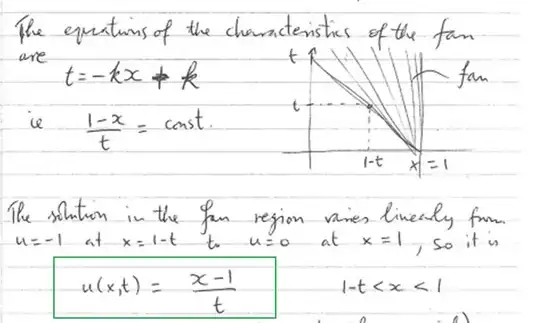 The equations of the characteristics of the fan
are
t = -kx + k
ie (1-x)/t = const.
t
t
fan
1-t
x = 1
The solution in the fan region varies linearly from
u = -1 at x = 1-t to u = 0 at x = 1, so it is
u(x,t) = (x-1)/t
1-t < x < 1